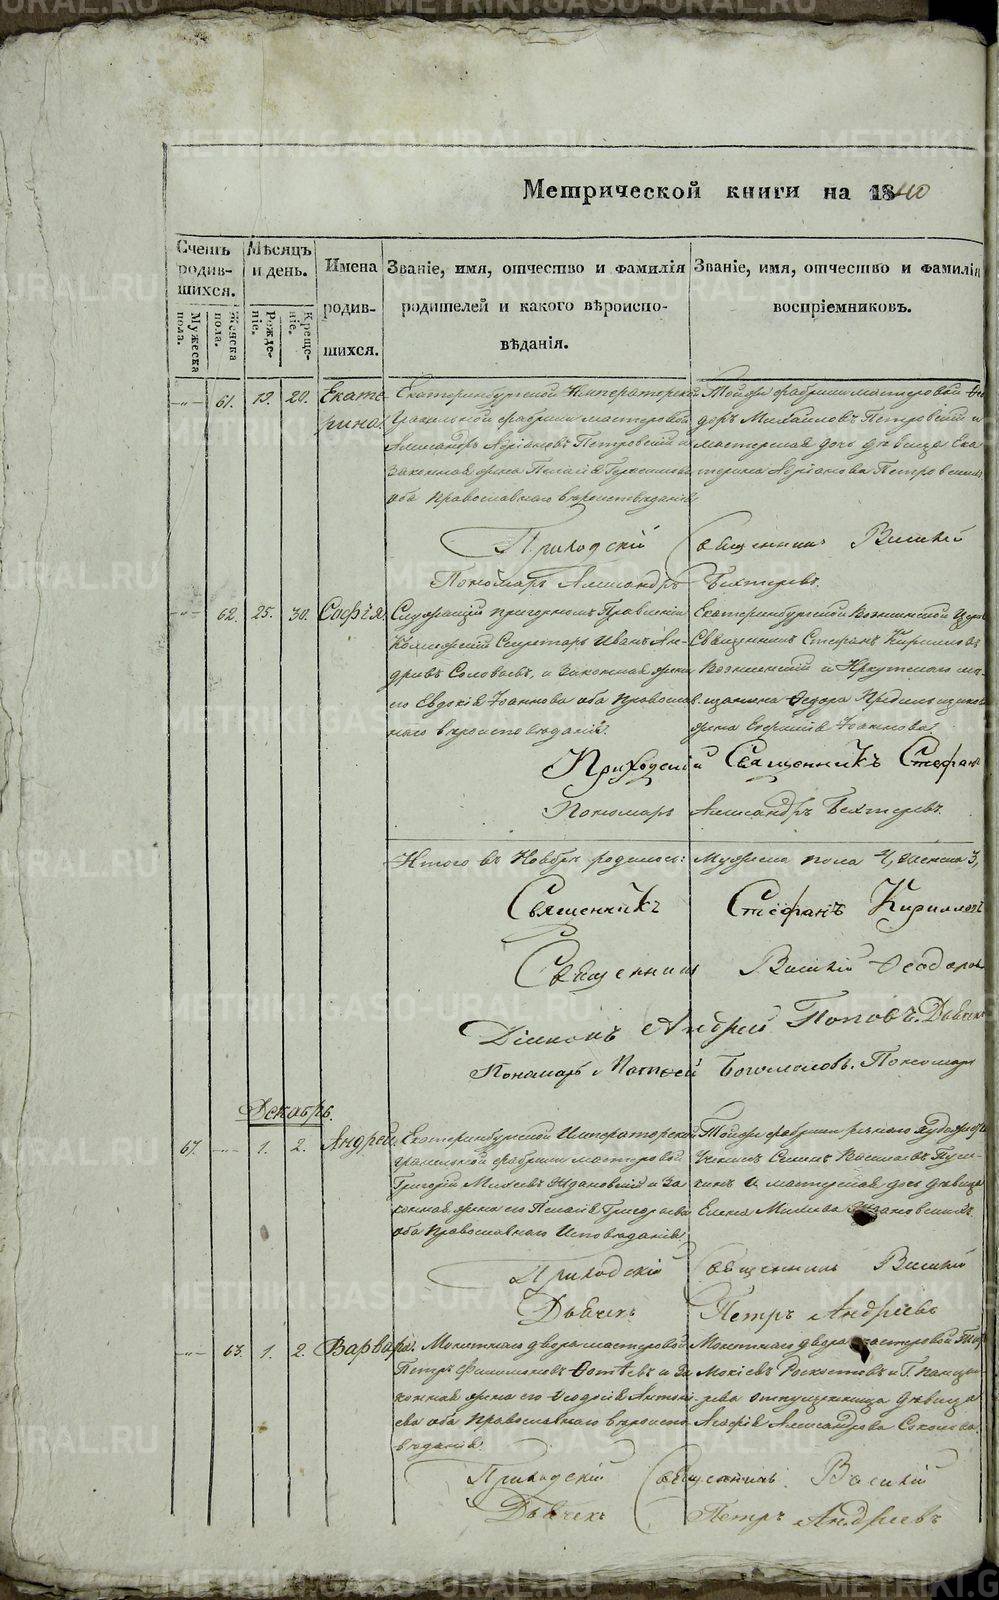 Метрической книги на 1840
Счетъ родив-шихся.
Мѣсяцъ и день.
Имена родив-шихся.
Званіе, имя, отчество и фамилія родителей и какого вѣроиспо-вѣданія.
Званіе, имя, отчество и фамиліи воспріемниковъ.
Мужеска пола.
Женска пола.
Рожде-ніе.
Креще-ніе.
61. 19. 20. Екате-
рина
Екатеринбургской Императорской
Гранильной фабрики мастеровой
Александръ Адріановъ Петровскій и
законная жена Пелагія
оба православнаго вѣроисповѣданія
Той же фабрики мастеровой
доръ Михаиловъ Петровскій и
мастерская дочь дѣвица Ека
терина Адріанова Петровская
Приходскій Священникъ Василій
Пономарь Александръ Бехтеревъ.
62. 25. 30. Софія.
Служащій при горномъ Правленіи
Коллежскій Секретарь Иванъ Ан-
древъ Соловьевъ, и законная жена
его Евдокія Іоаннова оба православ
наго вѣроисповѣданія.
Екатеринбургской Вознесенской Церк
Священникъ Стефанъ Кириллов
Вознесенскій и Иркутскаго мѣ-
щанина Ѳедора
жена Іоаннова.
Приходскій Священникъ Стефан
Пономарь Александръ Бехтеревъ.
Итого въ Ноябрѣ родилось: Мужеска пола 4, женска 3,
Священникъ Стефанъ Кирилловъ
Священникъ Василій Ѳеодоров
Діаконъ Андрей Поповъ. Дьячек
Пономарь Матѳей Богомоловъ. Пономарь
Декабрь.
67. 1. 2. Андрей.
Екатеринбургской Императорской
гранильной фабрики мастеровой
Григорій Михѣевъ Ждановскій и За
конная жена его Пелагія Григорьева
оба Православнаго Исповѣданія
Той же фабрики
Василіевъ
и мастерская дочь дѣвица
Елена Михѣева Ждановская.
Приходскій Священникъ Василій
Дьячекъ Петръ Андреевъ
63. 1. 2. Варвара.
Монетнаго двора мастеровой
Петръ Филимоновъ Фотѣевъ и За
конная жена его Ѳеодосія Антоні-
ева оба Православнаго вѣроиспо
вѣданія.
Монетнаго двора мастеровой
Мокіевъ
отпущенница дѣвица
Агафія Александрова Соколова.
Приходскій Священникъ Василій
Дьячекъ Петръ Андреевъ
METRIKI.GASO-URAL.RU